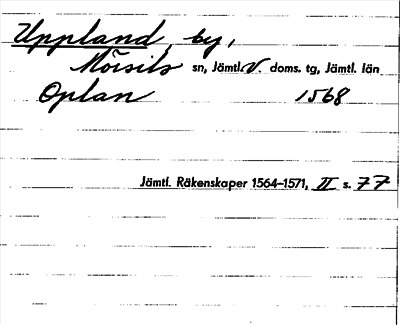 Uppland, by,
Mörsils sn, Jämtl. V. doms. tg, Jämtl. län
Oplan 1568
Jämtl. Räkenskaper 1564–1571, II s. 77